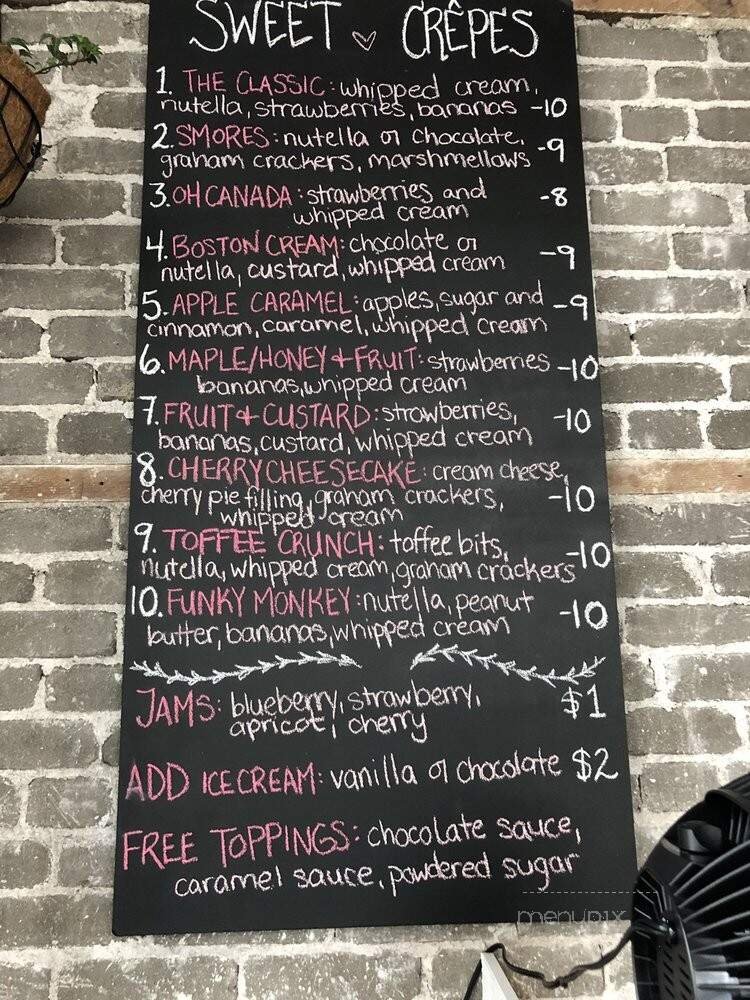 SWEET ♡ CRÊPES
1. THE CLASSIC: whipped cream,
nutella, strawberries, bananas -10
2. S'MORES: nutella or chocolate,
graham crackers, marshmellows -9
3. OH CANADA: strawberries and -8
whipped cream
4. BOSTON CREAM: chocolate or
nutella, custard, whipped cream -9
5. APPLE CARAMEL: apples, sugar and -9
cinnamon, caramel, whipped cream
6. MAPLE/HONEY + FRUIT: strawberries -10
bananas, whipped cream
7. FRUIT + CUSTARD: strawberries, -10
bananas, custard, whipped cream
8. CHERRY CHEESECAKE: cream cheese,
cherry pie filling, graham crackers, -10
whipped cream
9. TOFFEE CRUNCH: toffee bits, -10
nutella, whipped cream, graham crackers
10. FUNKY MONKEY: nutella, peanut -10
butter, bananas, whipped cream
JAMS: blueberry, strawberry, $1
apricot, cherry
ADD ICE CREAM: vanilla or chocolate $2
FREE TOPPINGS: chocolate sauce,
caramel sauce, powdered sugar
menupix